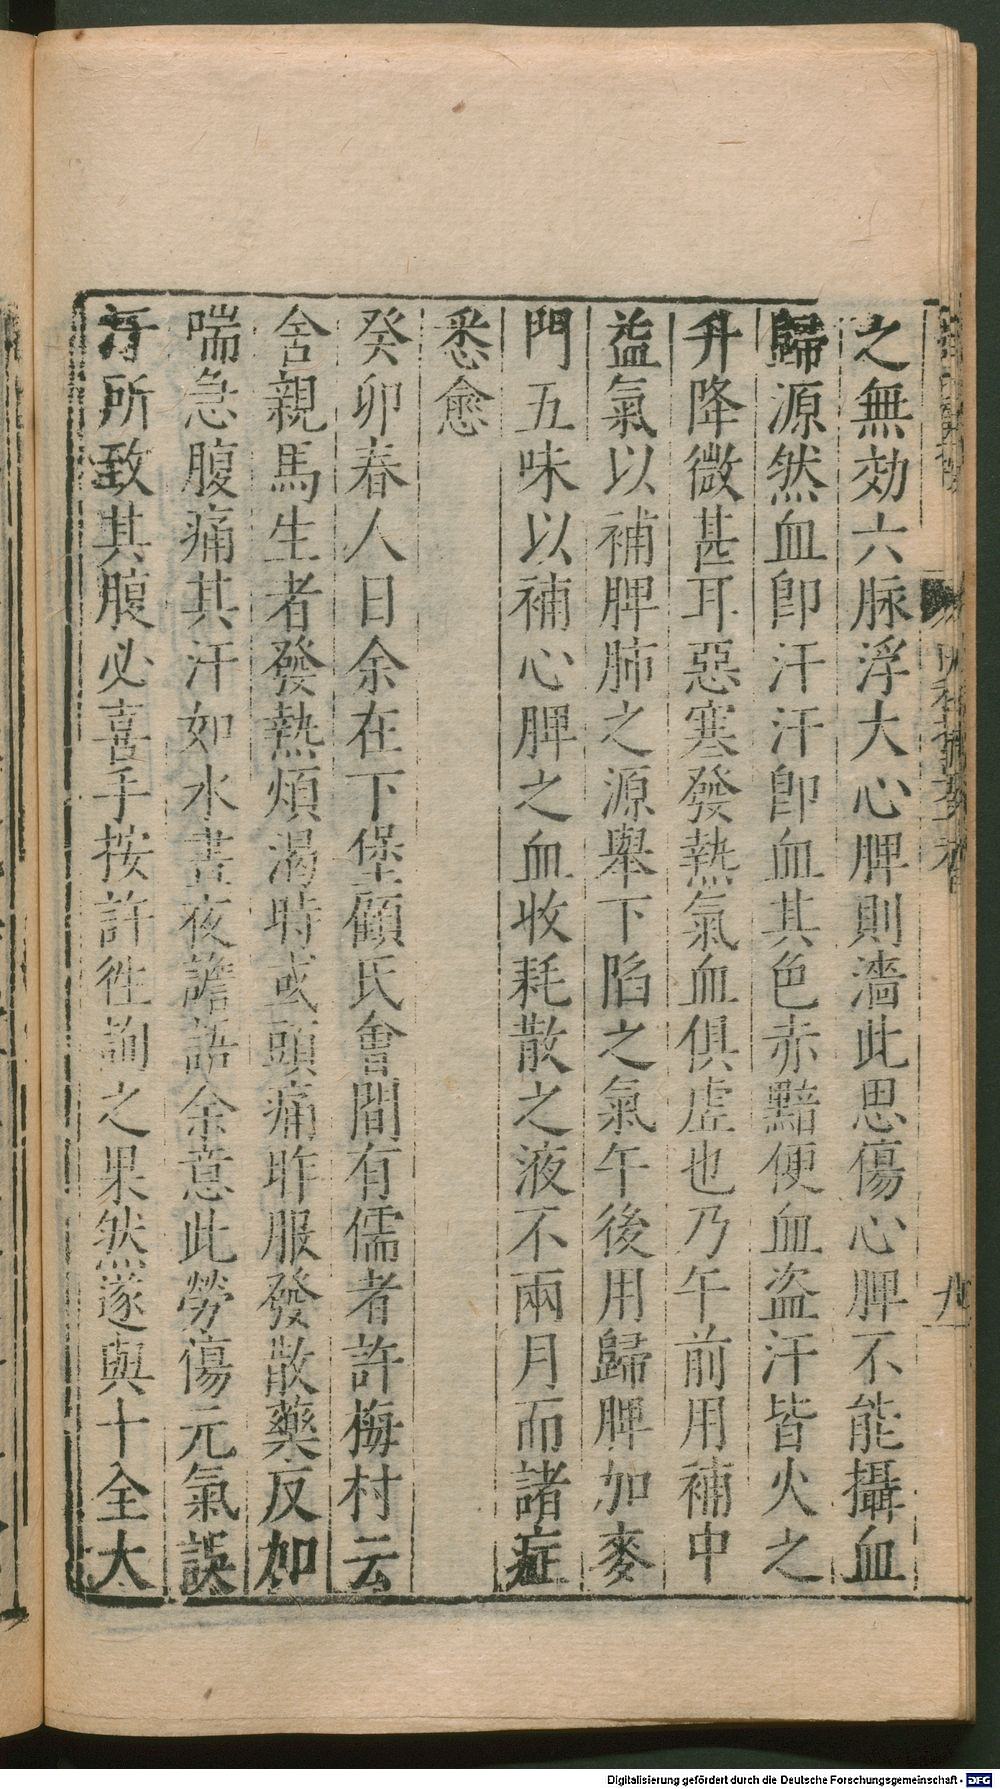 之無効六脉浮大心脾則濇此思傷心脾不能攝血
歸源然血卽汗汗卽血其色赤黯便血盜汗皆火之
升降微甚耳惡寒發熱氣血俱虛也乃午前用補中
益氣以補脾肺之源舉下陷之氣午後用歸脾加麥
門五味以補心脾之血收耗散之液不兩月而諸症
悉愈
癸卯春人日余在下堡顧氏會間有儒者許梅村云
舍親馬生者發熱煩渴時或頭痛昨服發散藥反加
喘急腹痛其汗如水晝夜譫語余意此勞傷元氣誤
汗所致其腹必喜手按許徃詢之果然遂與十全大
Digitalisierung gefördert durch die Deutsche Forschungsgemeinschaft - DFG